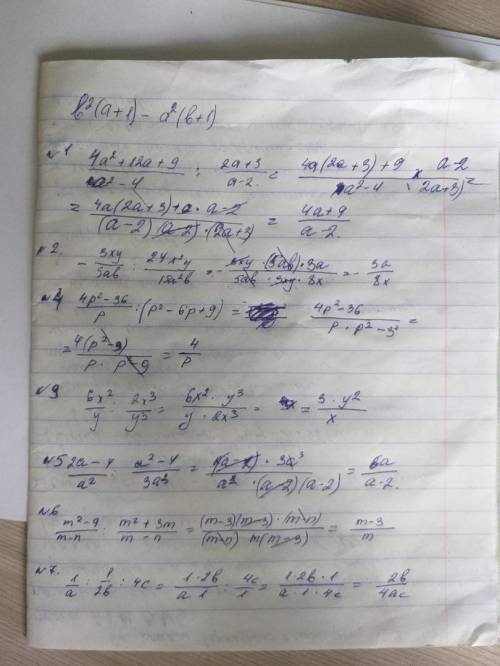 b²(a+1) - a²(b+1)
№1 (4a²+12a+9)/(a²-4) : (2a+3)/(a-2) = (4a(2a+3)+9)/(a²-4) × (a-2)/(2a+3)
= (4a(2a+3)+9 · a-2)/((a-2)(a-2)·(2a+3)) = (4a+9)/(a-2)
№2. - 3xy/5ab : 24x²y/15a²b = - (3xy·(5ab)·3a)/(5ab·3xy·8x) = - 3a/8x
№4 (4p²-36)/p : (p²-6p+9) = (4p²-36)/(p·p²-3²) =
= 4(p²-9)/(p·p²-9) = 4/p
№9 6x²/y : 2x³/y³ = (6x²·y³)/(y·2x³) = (3·y²)/x
№5 (2a-4)/a² : (a²-4)/3a³ = ·3a³/(a²·(a-2)(a-2)) = 6a/(a-2)
№6 (m²-9)/(m-n) : (m²+3m)/(m-n) = ((m-3)(m-3)·(m-n))/((m-n) m(m-3)) = (m-3)/m
№7. 1/a : 1/2b : 4c = (1·2b)/(a·1) : 4c/1 = (1·2b·1)/(a·1·4c) = 2b/4ac